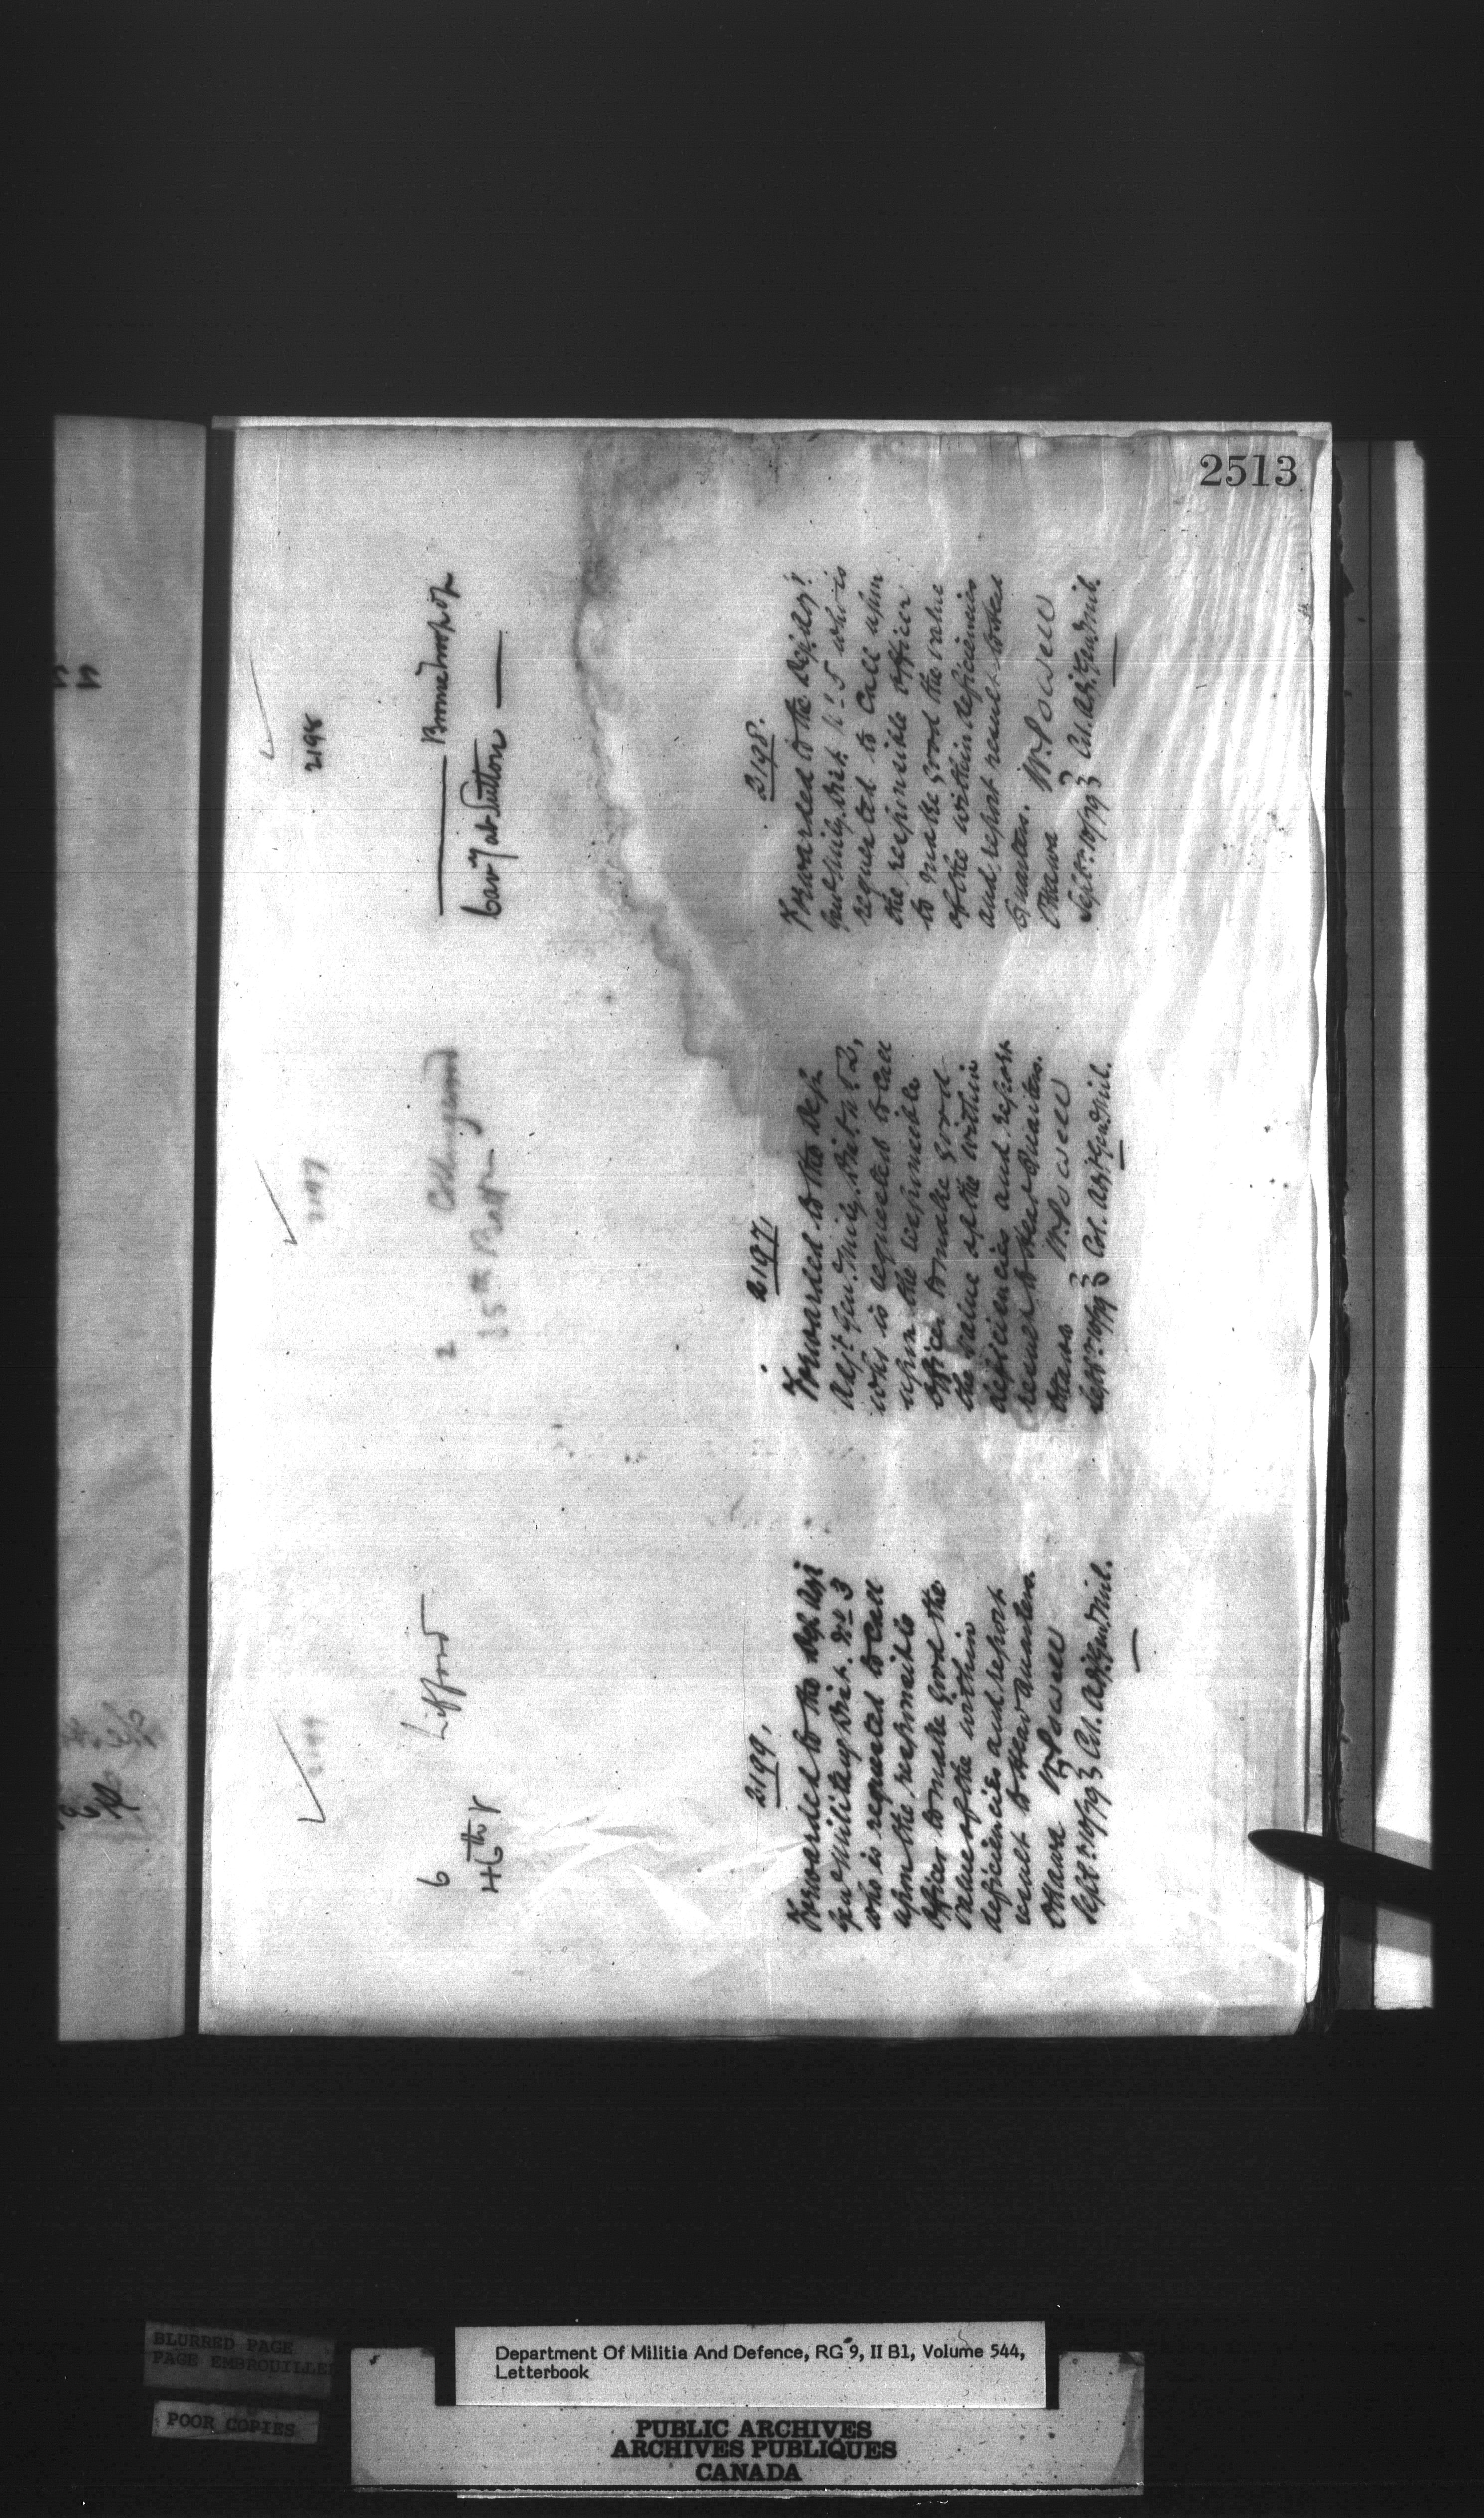 2513
2199
6 Lifford
46th
2199,
Forwarded to the Dep. Adj
Genl Military Dist. No 3
who is requested to call
upon the responsible
officer to make good the
value of the within
deficiencies and report
result to Head Quarters.
Ottawa W. Powell
Sept. 10/79 } Col. Adj. Genl Mil.
2197
2 Collingwood
35th Battn
2197,
Forwarded to the Dep.
Adjt Genl. Mily. Dist No. 2,
who is requested to call
upon the responsible
officer to make good
the value of the within
deficiencies and report
result to Head Quarters.
Ottawa W. Powell
Sept. 10/79 } Col. Adjt Genl Mil.
2198
Brome Troop of
Cavy at Sutton
2198.
Forwarded to the Dep. Adjt
Genl Mily. Dist. No 5 who is
requested to call upon
the responsible officer
to make good the value
of the within deficiencies
and report result to Head
Quarters.
Ottawa W. Powell
Sept. 10/79 } Col. Adj. Genl Mil.
BLURRED PAGE
PAGE EMBROUILLEE
POOR COPIES
Department Of Militia And Defence, RG 9, II B1, Volume 544,
Letterbook
PUBLIC ARCHIVES
ARCHIVES PUBLIQUES
CANADA